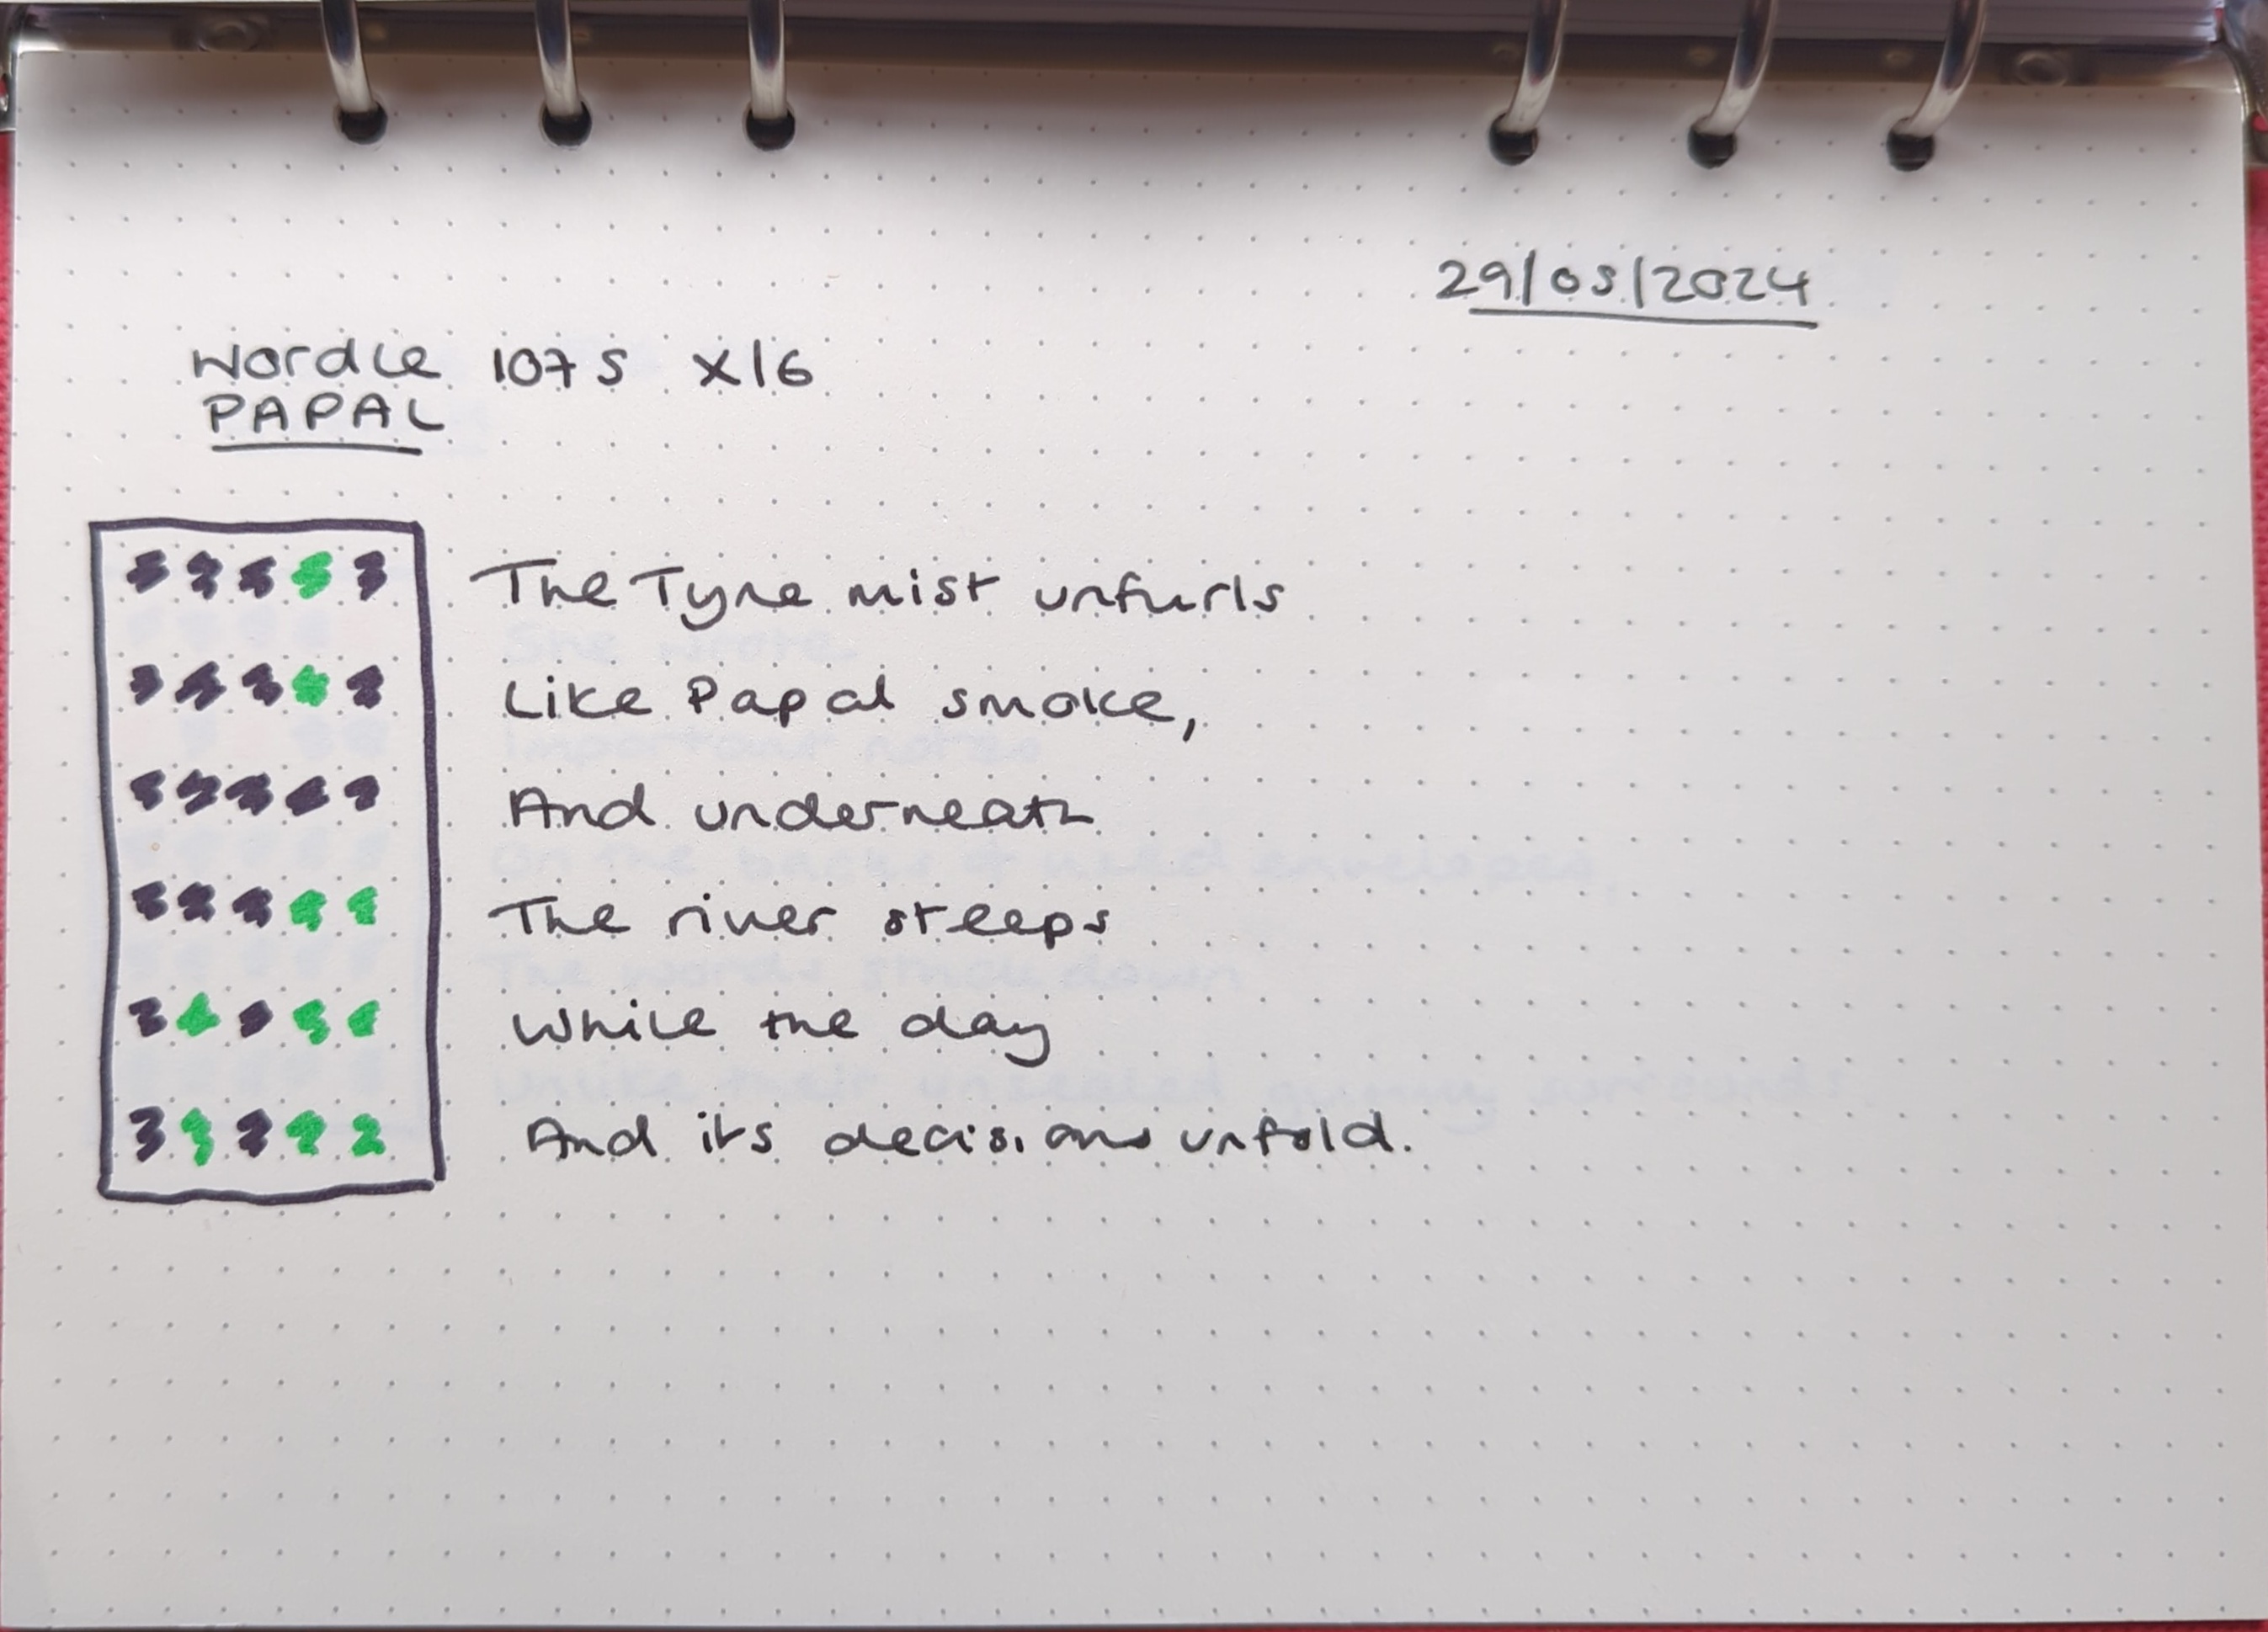 29/05/2024
Wordle 1075 X/6
PAPAL
The Tyne mist unfurls
Like Papal smoke,
And underneath
The river steeps
While the day
And its decisions unfold.